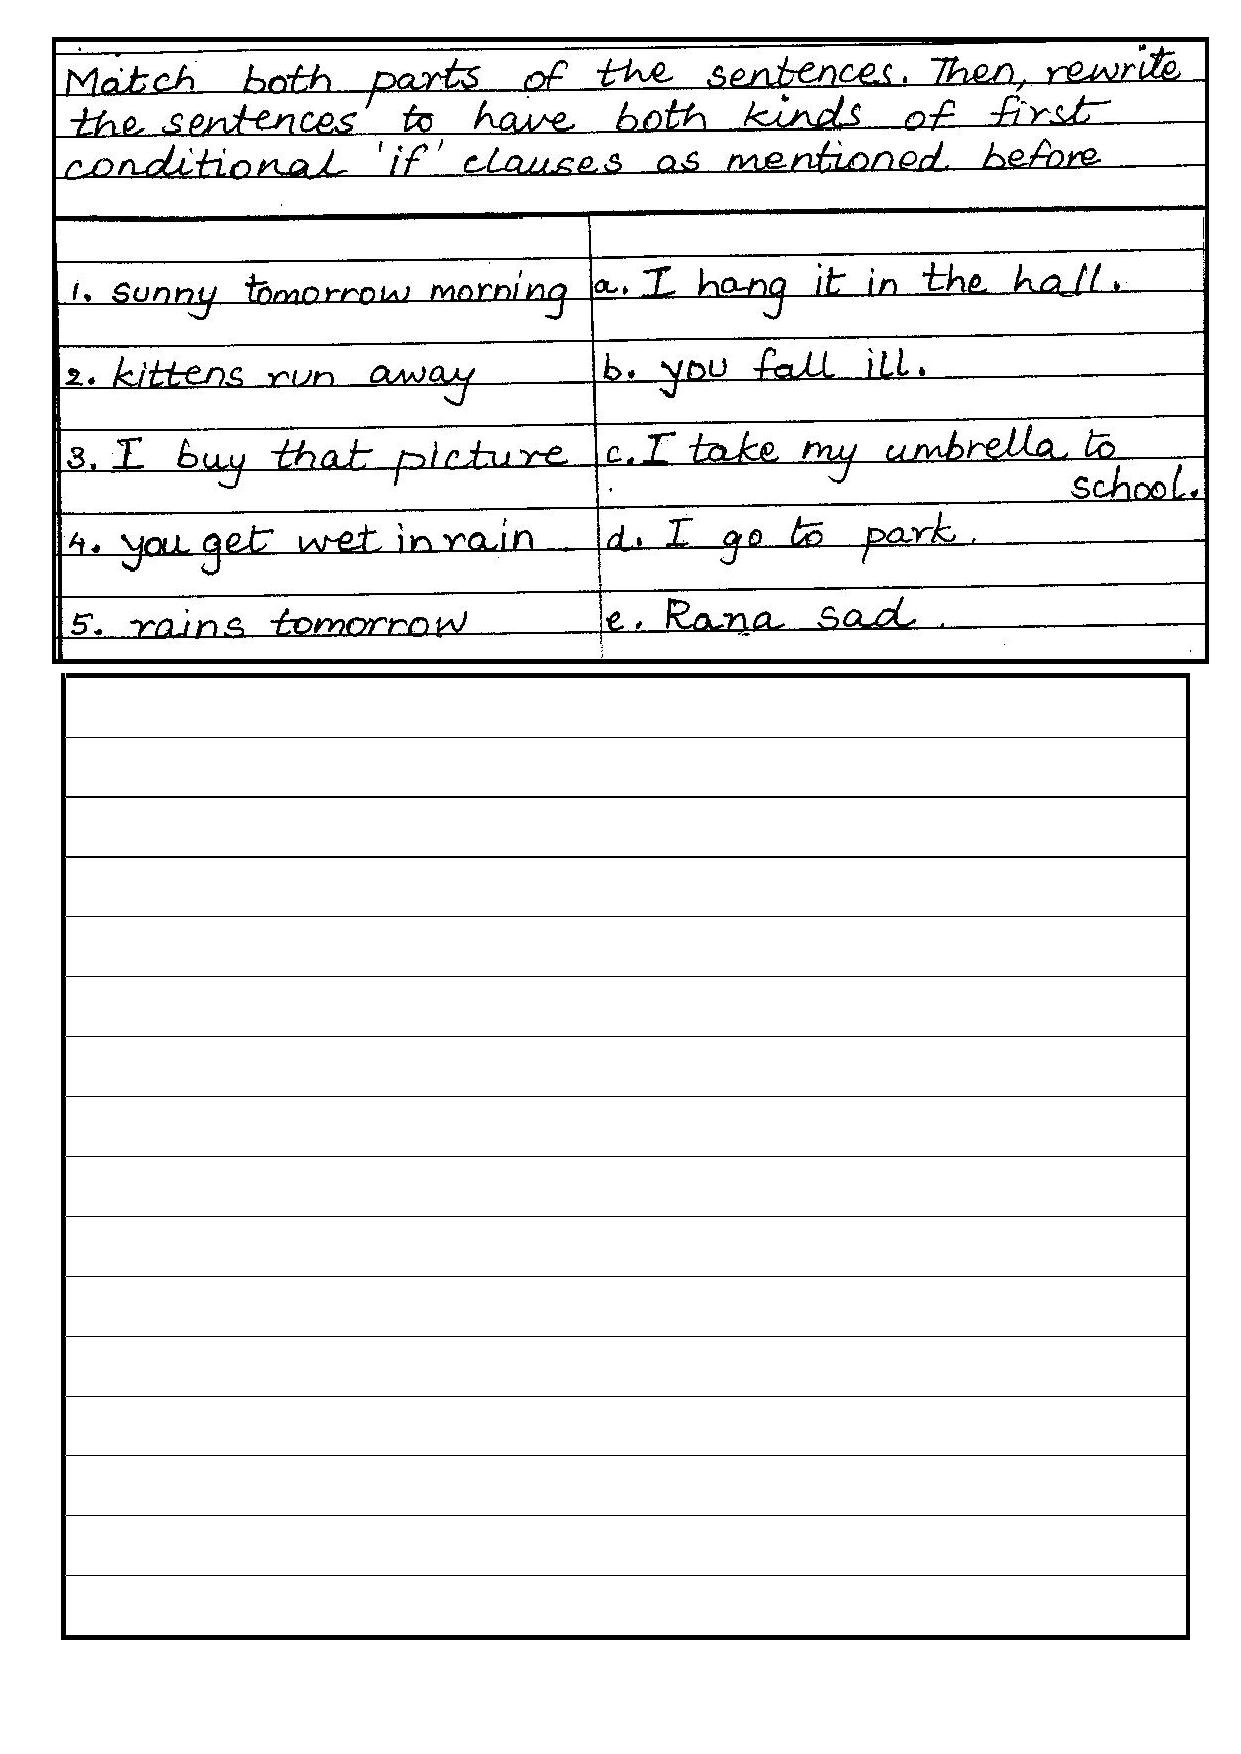 Match both parts of the sentences. Then, rewrite
the sentences to have both kinds of first
conditional 'if' clauses as mentioned before
1. sunny tomorrow morning a. I hang it in the hall.
2. kittens run away b. you fall ill.
3. I buy that picture c. I take my umbrella to
school.
4. you get wet in rain d. I go to park.
5. rains tomorrow e. Rana sad.